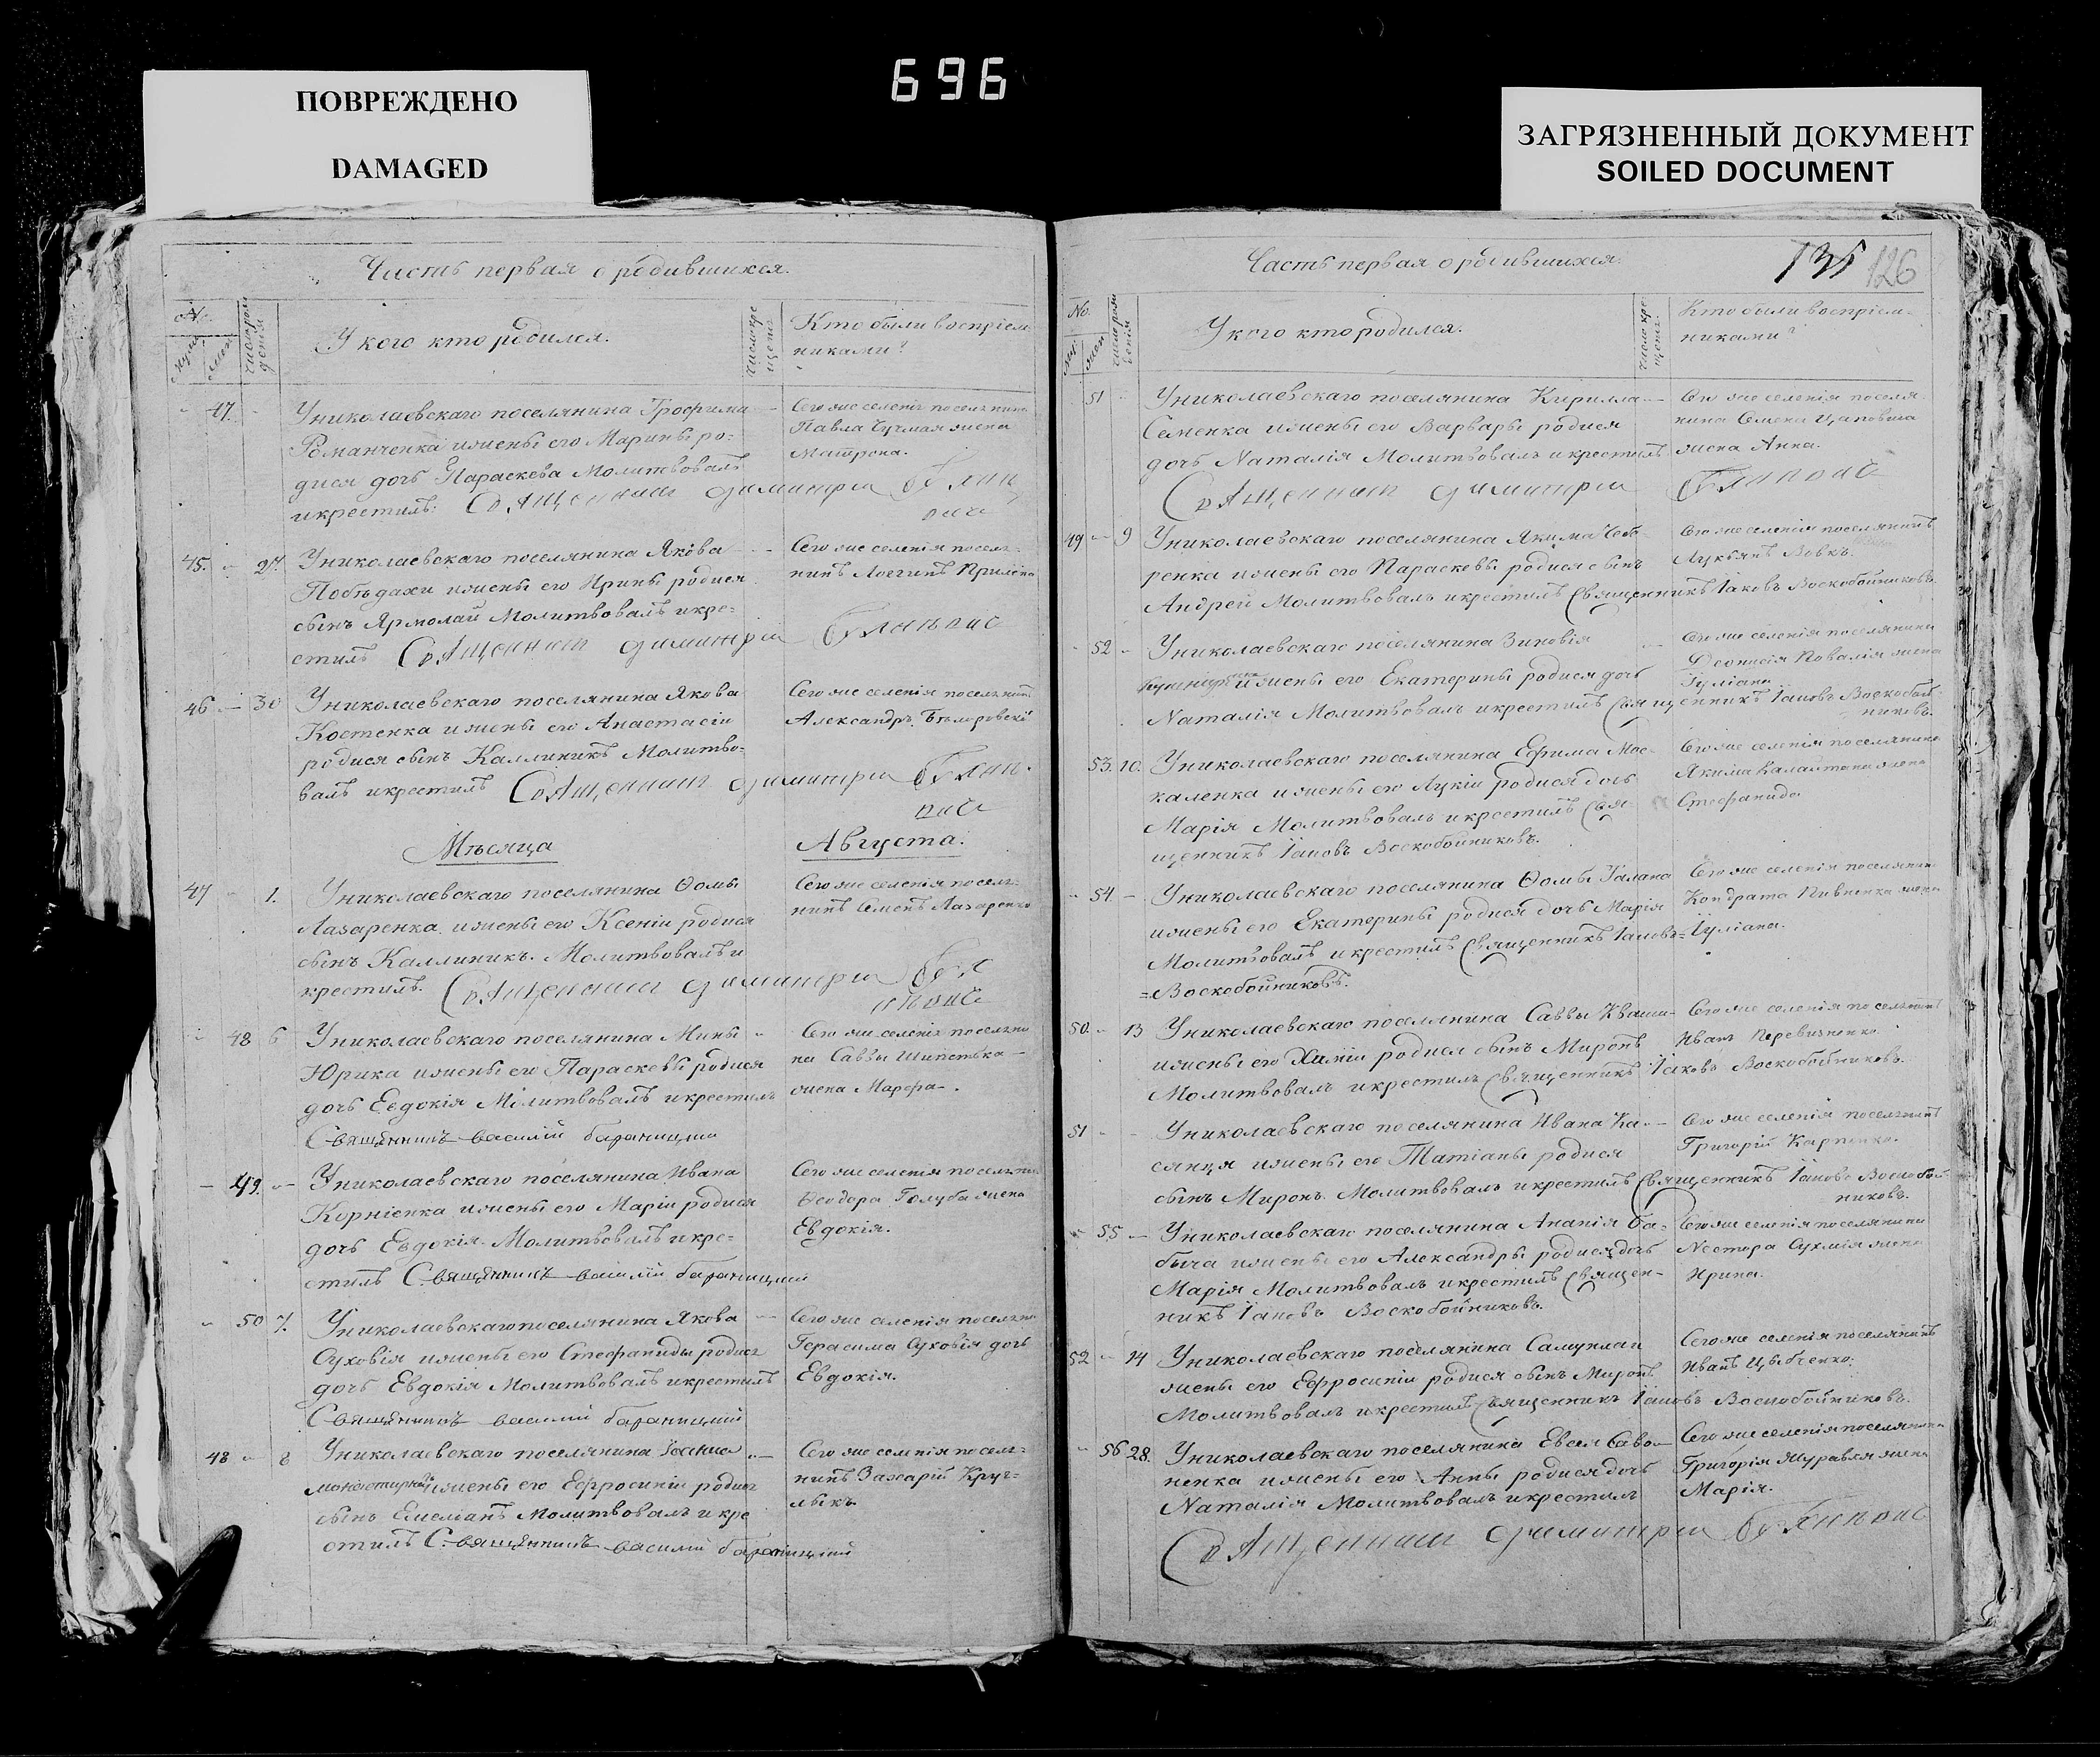 696
ПОВРЕЖДЕНО
DAMAGED
ЗАГРЯЗНЕННЫЙ ДОКУМЕНТ
SOILED DOCUMENT
Часть первая о родившихся.
No.
У кого кто родился.
Кто были воспріем
никами?
47.
У николаевскаго поселянина Трофима
Романченка и жены его Марины ро=
дися дочь Параскева Молитвовалъ
и крестилъ: Священникъ Димитрій
Сего же селенія поселянина
Павла жена
Матрона.
45. 27. У николаевскаго поселянина Якова
Побѣдахи и жены его Ирины родися
сынъ Ярмолай Молитвовалъ и кре=
стилъ Священникъ Димитрій
Сего же селенія поселя=
нинъ Логгинъ
46 — 30 У николаевскаго поселянина Якова
Костенка и жены его Анастасіи
родися сынъ Каллиникъ Молитво=
валъ и крестилъ Священникъ Димитрій
Сего же селенія поселянинъ
Александръ
Мѣсяца Августа.
47 1. У николаевскаго поселянина Ѳомы
Лазаренка и жены его Ксеніи родися
сынъ Каллиникъ. Молитвовалъ и
крестилъ. Священникъ Димитрій
Сего же селенія поселя=
нинъ Семенъ Лазаренко
48 6 У николаевскаго поселянина Мины
Юрика и жены его Параскевы родися
дочь Евдокія Молитвовалъ и крестилъ
Священникъ василій бараницкій
Сего же селенія поселяни
на Саввы
жена Марфа.
49. У николаевскаго поселянина Ивана
Корніенка и жены его Маріи родися
дочь Евдокія. Молитвовалъ и кре=
стилъ Священникъ василій бараницкій
Сего же селенія поселяни
Ѳеодора Голуба жена
Евдокія.
50 7. У николаевскаго поселянина Якова
Суховія и жены его Стефаниды родися
дочь Евдокія Молитвовалъ и крестилъ
Священникъ василій бараницкій
Сего же селенія поселяни
Герасима Суховія дочь
Евдокія.
48 8 У николаевскаго поселянина Іоанна
и жены его Ефросиніи родися
сынъ Емеліанъ Молитвовалъ и кре
стилъ Священникъ василій бараницкій
Сего же селенія поселя=
нинъ Захарій Круг=
лыкъ
Часть первая о родившихся.
135 126
No.
У кого кто родился.
Кто были воспріем=
никами?
51 У николаевскаго поселянина Кирилла
Семенка и жены его Варвары родися
дочь Наталія Молитвовалъ и крестилъ
Священникъ Димитрій
Сего же селенія поселя
нина Семена жена Анна.
49 9 У николаевскаго поселянина Якима
ренка и жены его Параскевы родися сынъ
Андрей Молитвовалъ и крестилъ Священникъ Іаковъ Воскобойниковъ.
Сего же селенія поселянинъ
Лукьянъ Вовкъ.
52 У николаевскаго поселянина Зиновія
и жены его Екатерины родися дочь
Наталія Молитвовалъ и крестилъ Священникъ Іаковъ Воскобой
никовъ.
Сего же селенія поселянина
Деонисія Ковалія жена
Іуліана
53. 10. У николаевскаго поселянина Ефима Мос
каленка и жены его Лукіи родися дочь
Марія Молитвовалъ и крестилъ Свя
щенникъ Іаковъ Воскобойниковъ.
Сего же селенія поселянина
Якима жена
Стефанида
54. У николаевскаго поселянина Ѳомы Галана
и жены его Екатерины родися дочь Марія
Молитвовалъ и крестилъ Священникъ Іаковъ=
=Воскобойниковъ.
Сего же селенія поселянина
Кондрата Пивненка жена
Іуліана.
50. 13 У николаевскаго поселянина Саввы Кваши
и жены его родися сынъ Миронъ
Молитвовалъ и крестилъ Священникъ Іаковъ Воскобойниковъ.
Сего же селенія поселянинъ
Иванъ
51 У николаевскаго поселянина Ивана Ка
сянця и жены его Татіаны родися
сынъ Миронъ. Молитвовалъ и крестилъ Священникъ Іаковъ Воскобой
никовъ.
Сего же селенія поселянинъ
Григорій Карпенко.
55 У николаевскаго поселянина Ананія Ба=
быча и жены его Александры родися дочь
Марія Молитвовалъ и крестилъ Священ=
никъ Іаковъ Воскобойниковъ.
Сего же селенія поселянина
Нестора жена
Ирина.
52 14 У николаевскаго поселянина
жены его Ефросиніи родися сынъ Миронъ
Молитвовалъ и крестилъ Священникъ Іаковъ Воскобойниковъ.
Сего же селенія поселянинъ
Иванъ
56 28. У николаевскаго поселянина Евсея Саво
ненка и жены его Анны родися дочь
Наталія Молитвовалъ и крестилъ
Священникъ Димитрій
Сего же селенія поселянина
Григорія Журавля жена
Марія.